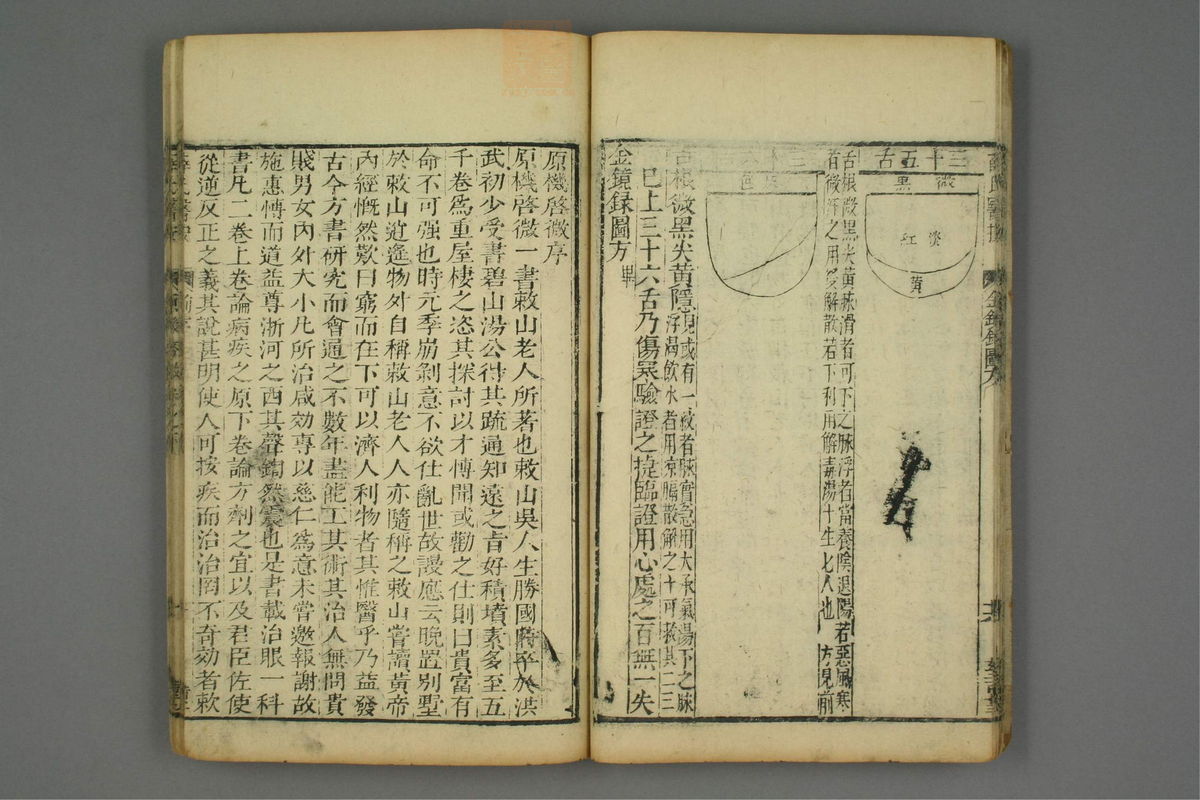 三十五舌
微黑
淡紅
黃
舌根微黑尖黃脉滑者可下之脉浮者當養陰退陽若惡風寒
者微汗之用雙解散若下利用解毒湯十生七八也 方見前
三十
舌根微黑尖黃隱見或有一紋者脉實急用大承氣湯下之脉
浮渴飲水者用凉膈散解之十可救其二三
已上三十六舌乃傷寒驗證之捷臨證用心處之百無一失
金鏡錄圖方 畢
金鏡錄圖方
原機啓微序
原機啓微一書敕山老人所著也敕山吳人生勝國時卒於洪
武初少受書碧山湯公得其疏通知遠之旨好積墳素多至五
千卷爲重屋棲之恣其探討以才傳聞或勸之仕則曰貴富有
命不可强也時元季崩剝意不欲仕亂世故謾應云晚置别墅
於敕山逍遙物外自稱敕山老人人亦隨稱之敕山嘗讀黃帝
內經慨然歎曰窮而在下可以濟人利物者其惟醫乎乃益發
古今方書研究而會通之不數年盡能工其術其治人無問貴
賤男女內外大小凡所治咸効專以慈仁爲意未嘗邀報謝故
施惠博而道益尊浙河之西其聲鍧然震也是書載治眼一科
書凡二卷上卷論病疾之原下卷論方劑之宜以及君臣佐使
從逆反正之義其說甚明使人可按疾而治治罔不奇効者敕